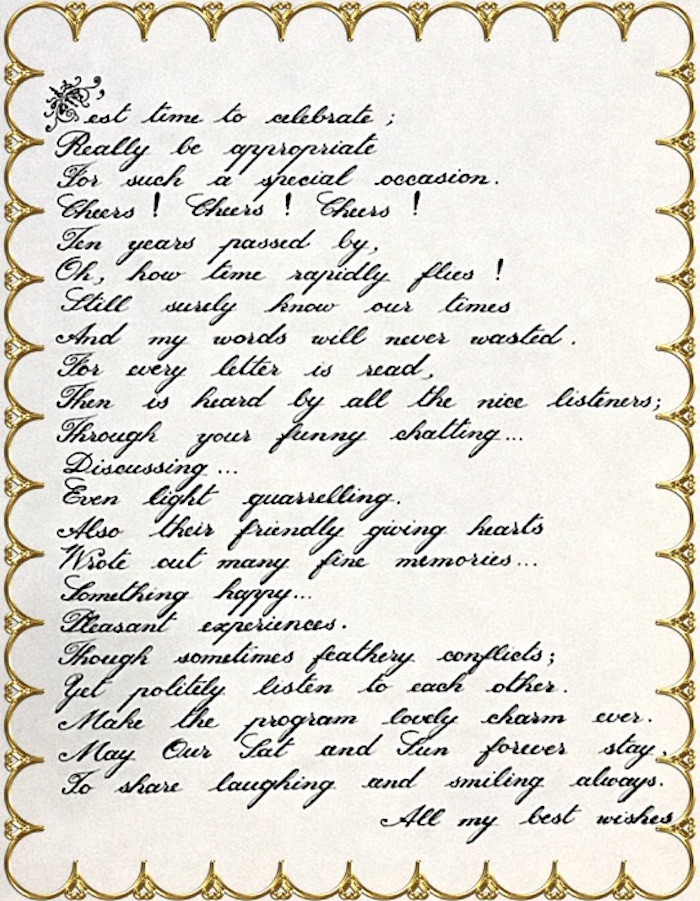 Best time to celebrate ;
Really be appropriate
For such a special occasion.
Cheers ! Cheers ! Cheers !
Ten years passed by,
Oh, how time rapidly flies !
Still surely know our times
And my words will never wasted .
For every letter is read,
Then is heard by all the nice listeners;
Through your funny chatting...
Discussing ...
Even light quarrelling.
Also their friendly giving hearts
Wrote out many fine memories...
Something happy...
Pleasant experiences.
Though sometimes feathery conflicts;
Yet politely listen to each other.
Make the program lovely charm ever.
May Our Sat and Sun forever stay.
To share laughing and smiling always.
All my best wishes